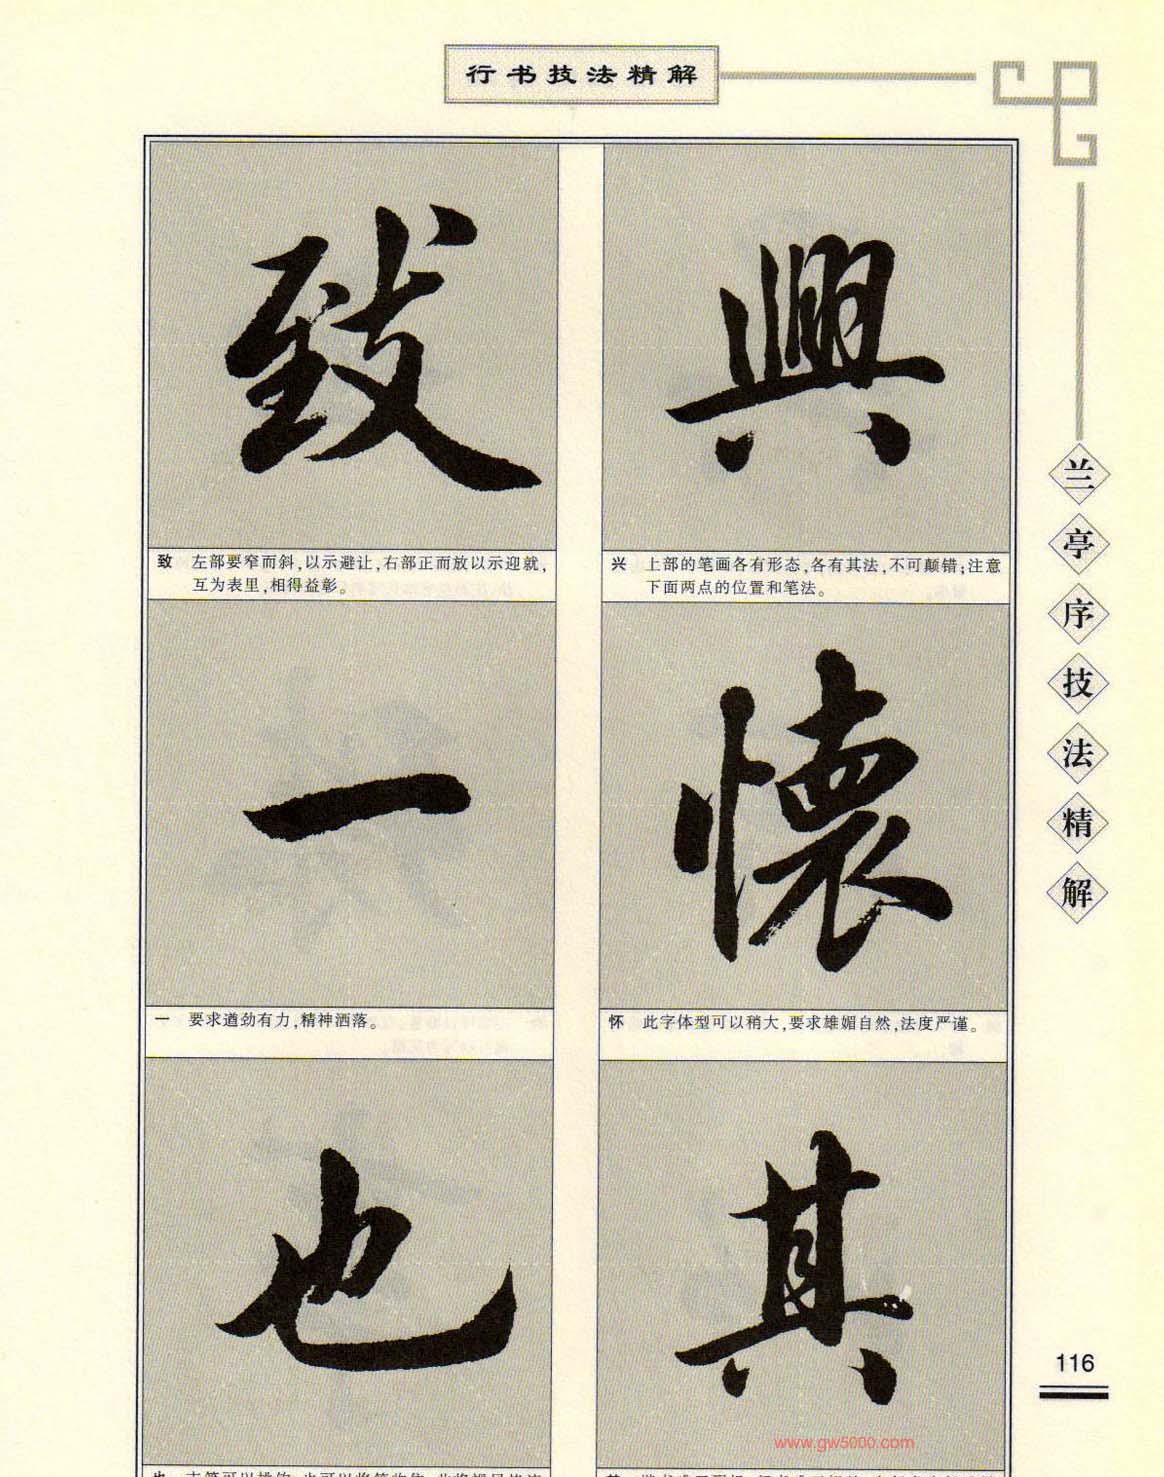 行书技法精解
興
兴 上部的笔画各有形态,各有其法,不可颠错;注意
下面两点的位置和笔法。
懷
怀 此字体型可以稍大,要求雄媚自然,法度严谨。
其
致
致 左部要窄而斜,以示避让,右部正而放以示迎就,
互为表里,相得益彰。
一
一 要求遒劲有力,精神洒落。
也
兰亭序技法精解
116
www.gw5000.com